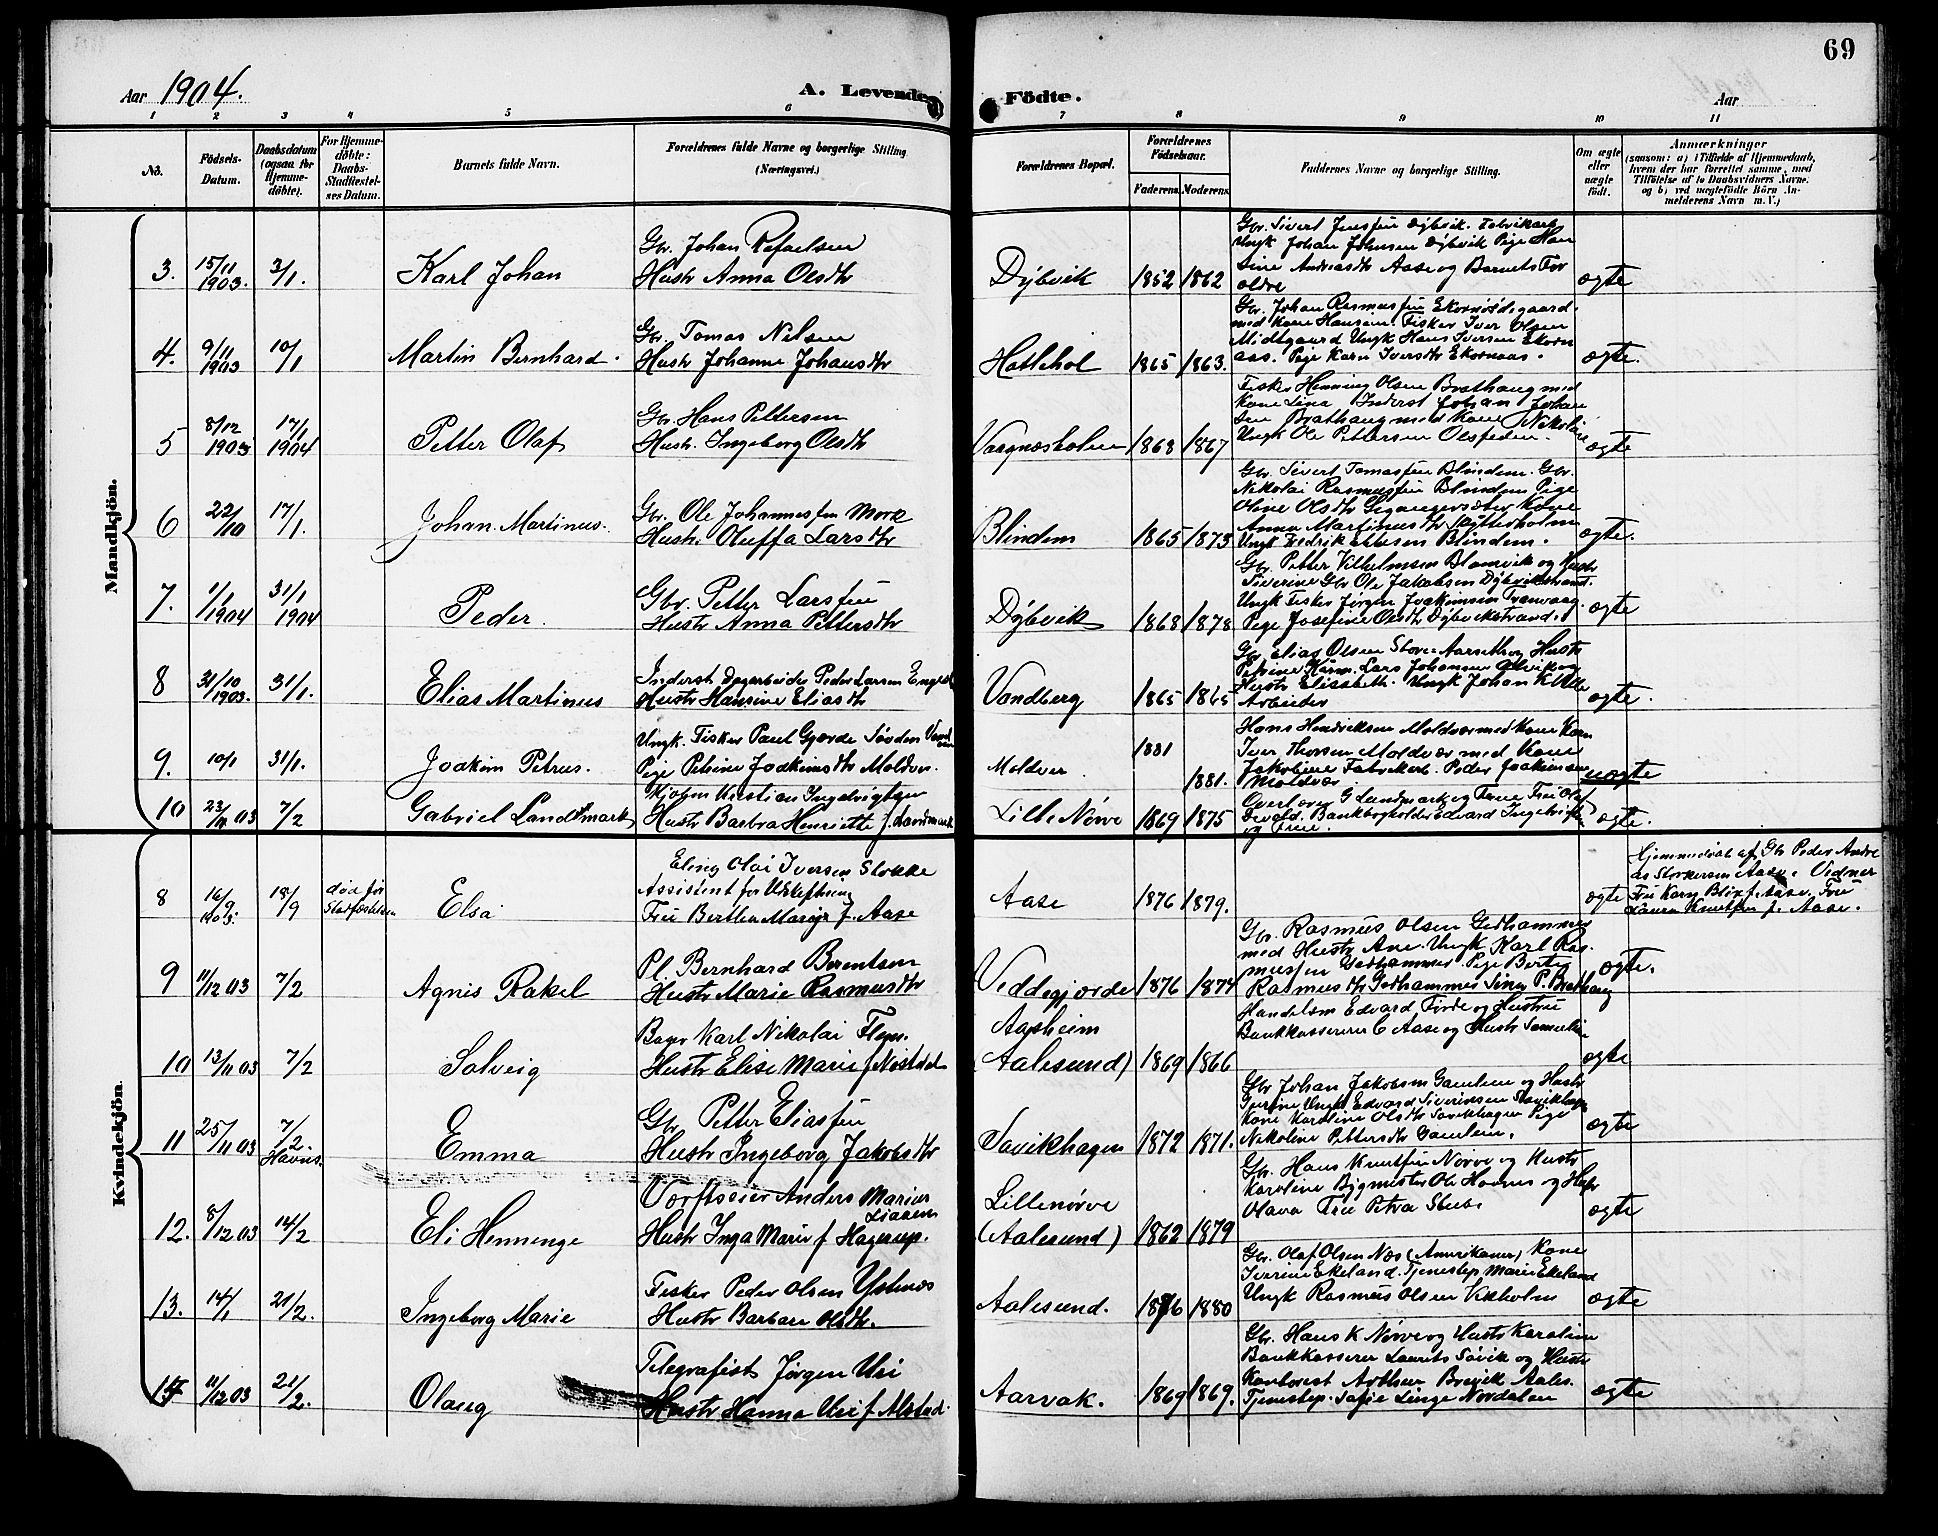 69
Aar 1904.
A. Levende Födte.
Aar
1 2 3 4 5 6 7 8 9 10 11
No.
Födsels-Datum.
Daabsdatum (ogsaa for Hjemme-döbte).
For Hjemme-döbte: Daabs-Stadfæstel-ses Datum.
Barnets fulde Navn.
Forældrenes fulde Navne og borgerlige Stilling (Næringsvei.)
Forældrenes Bopæl.
Forældrenes Födselsaar.
Faderens. Moderens.
Faddernes Navne og borgerlige Stilling.
Om ægte eller uægte födt.
Anmærkninger
(saasom: a) i Tilfælde af Hjemmedaab,
hvem der har forrettet samme, med
Tilföielse af to Daabsvidners Navne.
og b) ved uægtefödte Börn An-
melderens Navn m. V.)
Mandkjön.
3. 15/11 1903. 3/1. Karl Johan
Gbr. Johan Rafaelsen
Hustr Anna Olsdtr
Dybvik 1852 1862
Gbr. Sivert Jensen Dybvik. Fabrikarb
Ungk Johan Johnsen Dybvik Pige Han
sine Andreasdtr Aase og Barnets For
ældre
ægte
4. 9/11 1903 10/1 Martin Bernhard.
Gbr Tomas Nilsen
Hustr Johanne Johansdtr
Hatlehol 1865 1863.
Gbr. Johan Rasmussen Ekornødegaard.
med Kone Hansine. Fisker Iver Olsen
Midtgaard Ungk Hans Iversen Ekorn
aas. Pige Karn Iversdtr Ekornaas.
ægte.
5 8/12 1903 17/1 1904 Petter Olaf
Gbr. Hans Pettersen
Hustr. Ingeborg Olsdtr
Vaagnæsholen 1868 1867
Fisker Henning Olsen Brathaug med
Kone Lina Inderst Johan Johan
sen Brathaug med Kone Nikoline
Ungk Ole Pettersen
ægte
6 22/10 17/1. Johan Martinus.
Gbr. Ole Johannessen Mork
Hustr. Oluffa Larsdtr
Blindem 1865 1873
Gbr. Sivert Tomassen Blindem. Gbr.
Nikolai Rasmussen Blindem Pige
Oline Olsdtr Kone
Anna Martinusdtr
Ungk Fredrik Blindem.
ægte.
7. 1/1 1904 31/1 1904 Peder.
Gbr. Petter Larsen
Hustr Anna Pettersdtr
Dybvik 1868 1878
Gbr. Petter Vilhelmsen Blomvik og Hustr
Siverine Gbr Ole Jakobsen Dybvikstrand.
Ungk Fisker Jørgen Joakimsen Tranvaag.
Pige Josefine Olsdtr Dybvikstrand.
ægte
8 31/10 1903. 31/1. Elias Martinus
Inderst Dagarbeider Peder Larsen
Hustr Hansine Eliasdtr
Vandberg 1865 1865
Gbr Elias Olsen Store Aarseth og Hustr
Petrine Lars Johansen
Hustr Elisabeth. Ungk Johan
Arbeider
ægte.
9. 10/1 31/1. Joakim Petrus.
Ungk. Fisker Paul Gjærde
Pige Petrine Joakimsdtr Moldver.
Moldver 1881 1881.
Hans Hendriksen Moldvær med Kone Karn
Iver Thorsen Moldvær med Kone
Jakobine Fabrikarb. Peder Joakimsen
Moldvær
uægte
10 23/11 03 7/2 Gabriel Landmark
Kristian Ingebrigtsen
Hustr Barbra Henriette f. Landmark
Lille Nørve 1869 1875
Overlærer G Landmark og Frue Olaf
Devold. Bankbogholder Edvard Ingebrigtsen
og Frue.
ægte.
Kvindekjön.
8 16/9 1903. 18/9 død før Stadfæstelsen Elsa
Eling Olai Iversen Stokke
Assistent for Udskiftning
Fru Berthea Marie f. Aase
Aase 1876 1879.
ægte
Hjemmedøbt af Gbr Peder Andre
as Storkersen Aase. Vidner
Fru Karn Blix f. Aase. Fru
Laura Knutsen f. Aase.
9 11/12 03 7/2 Agnis Rakel
Pl. Bernhard Berentsen
Hustr Marie Rasmusdtr
Veddegjerde 1876 1874
Gbr. Rasmus Olsen Gedhammer
med Hustr Ane. Ungk Karl Ras
mussen Gedhammer. Pige Berte
Rasmusdtr Gedhammer Sina P. Brathaug
ægte.
10 13/11 03 7/2 Solveig
Bager Karl Nikolai
Hustr Elise Marie f Nostdal
Aasheim
(Aalesund) 1869 1866
Handelsm Edvard Førde og Hustru
Bankkasserer C Aase og Hustr
ægte
11 25/11 03 7/2. Havns. Emma
Gbr Petter Eliassen
Hustr Ingeborg Jakobsdtr
Savikhagen 1872 1871.
Gbr Johan Jakobsen Gamlem og Hustr
Gurine Ungk Edvard Siverinsen Savikhagen
Kone Karoline Olsdtr Savikhagen Pige
Nikoline Pettersdtr Gamlem.
ægte
12. 8/12 03 14/2 Eli Henninge
Værftseier Anders Marius
Liaaen
Hustr Inga Marie f Hagerup.
Lillenørve
(Aalesund) 1862 1879
Gbr. Hans Knutsen Nørve og Hustr
Karoline Bygmester Ole Havnes og Hustr
Olava Fru Petra Stub.
ægte
13. 14/1 21/2. Ingeborg Marie
Fisker Peder Olsen Ystenes
Hustr Barbare Olsdtr.
Aalesund. 1876 1880
Gbr. Olaf Olsen Næs (Amerikaner) Kone
Iverine Ekeland. Tjenestep. Marie Ekeland
Ungk Rasmus Olsen Vikholm
ægte
14 11/12 03 21/2. Olaug
Telegrafist Jørgen Uri
Hustr Hanna Uri f Alstad.
Aarvak. 1869 1869.
Gbr. Hans K Nørve og Hustr Karoline
Bankkasserer Laurits Søvik og Hustr
Kontorist Arthur Breivik Aales.
Tjenestep. Sofie Linge Nordalen
ægte